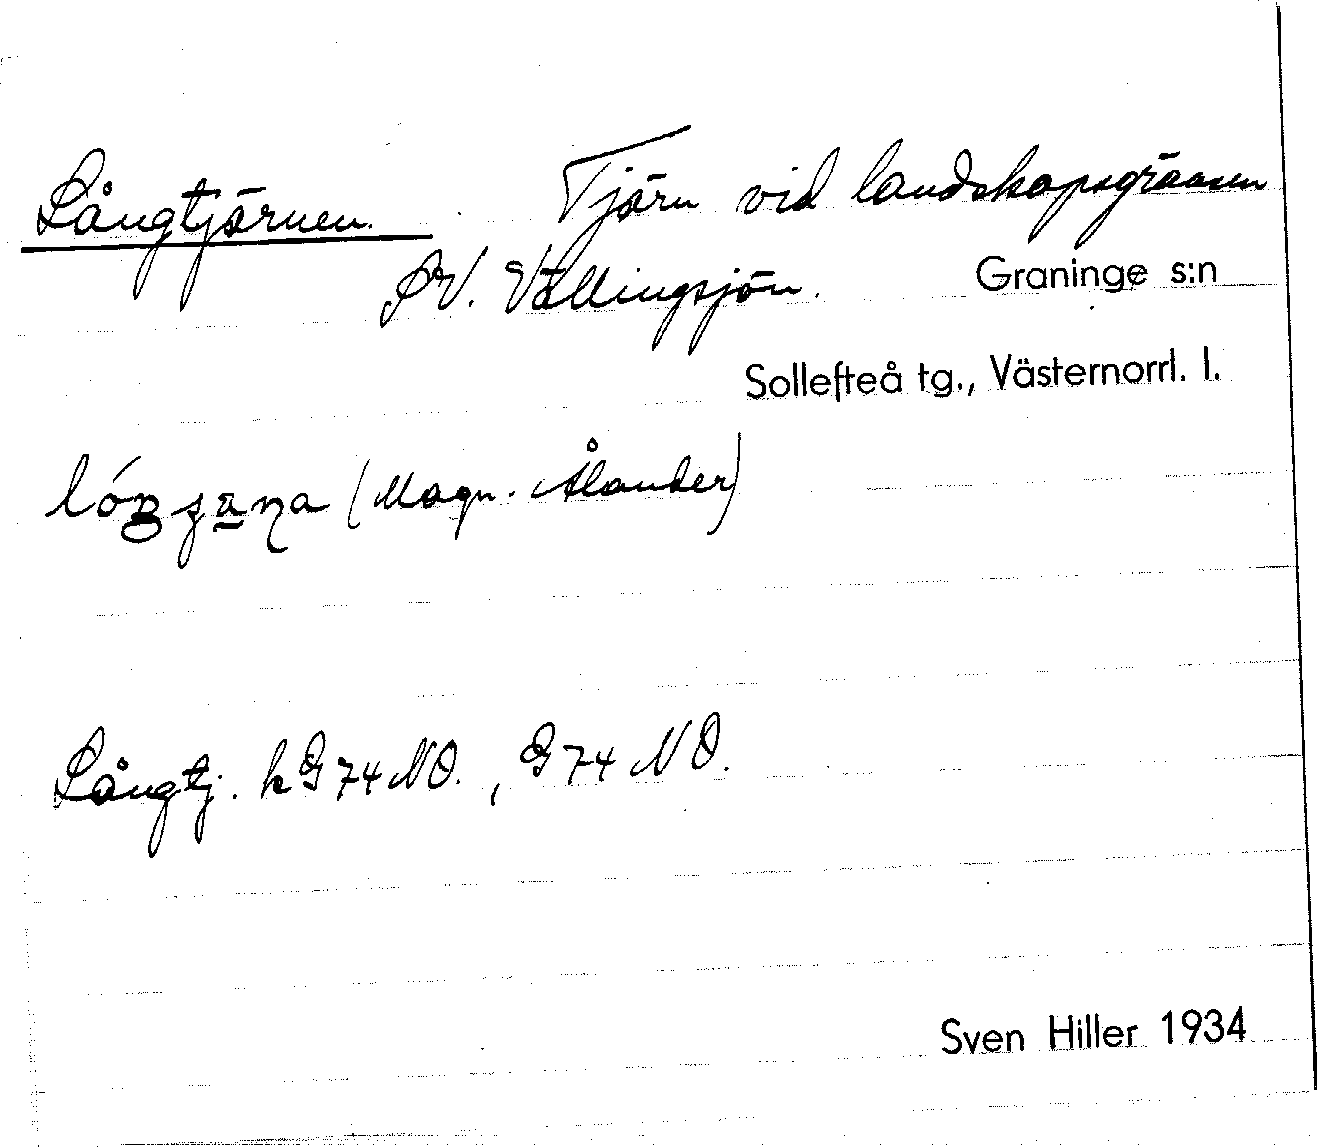 Långtjärnen. Tjärn vid landskapsgränsen
SV. Vällingsjön. Graninge s:n
Sollefteå tg., Västernorrl. l.
(Magn. Ålander)
Långtj. k G 74 NO., G 74 NO.
Sven Hiller 1934